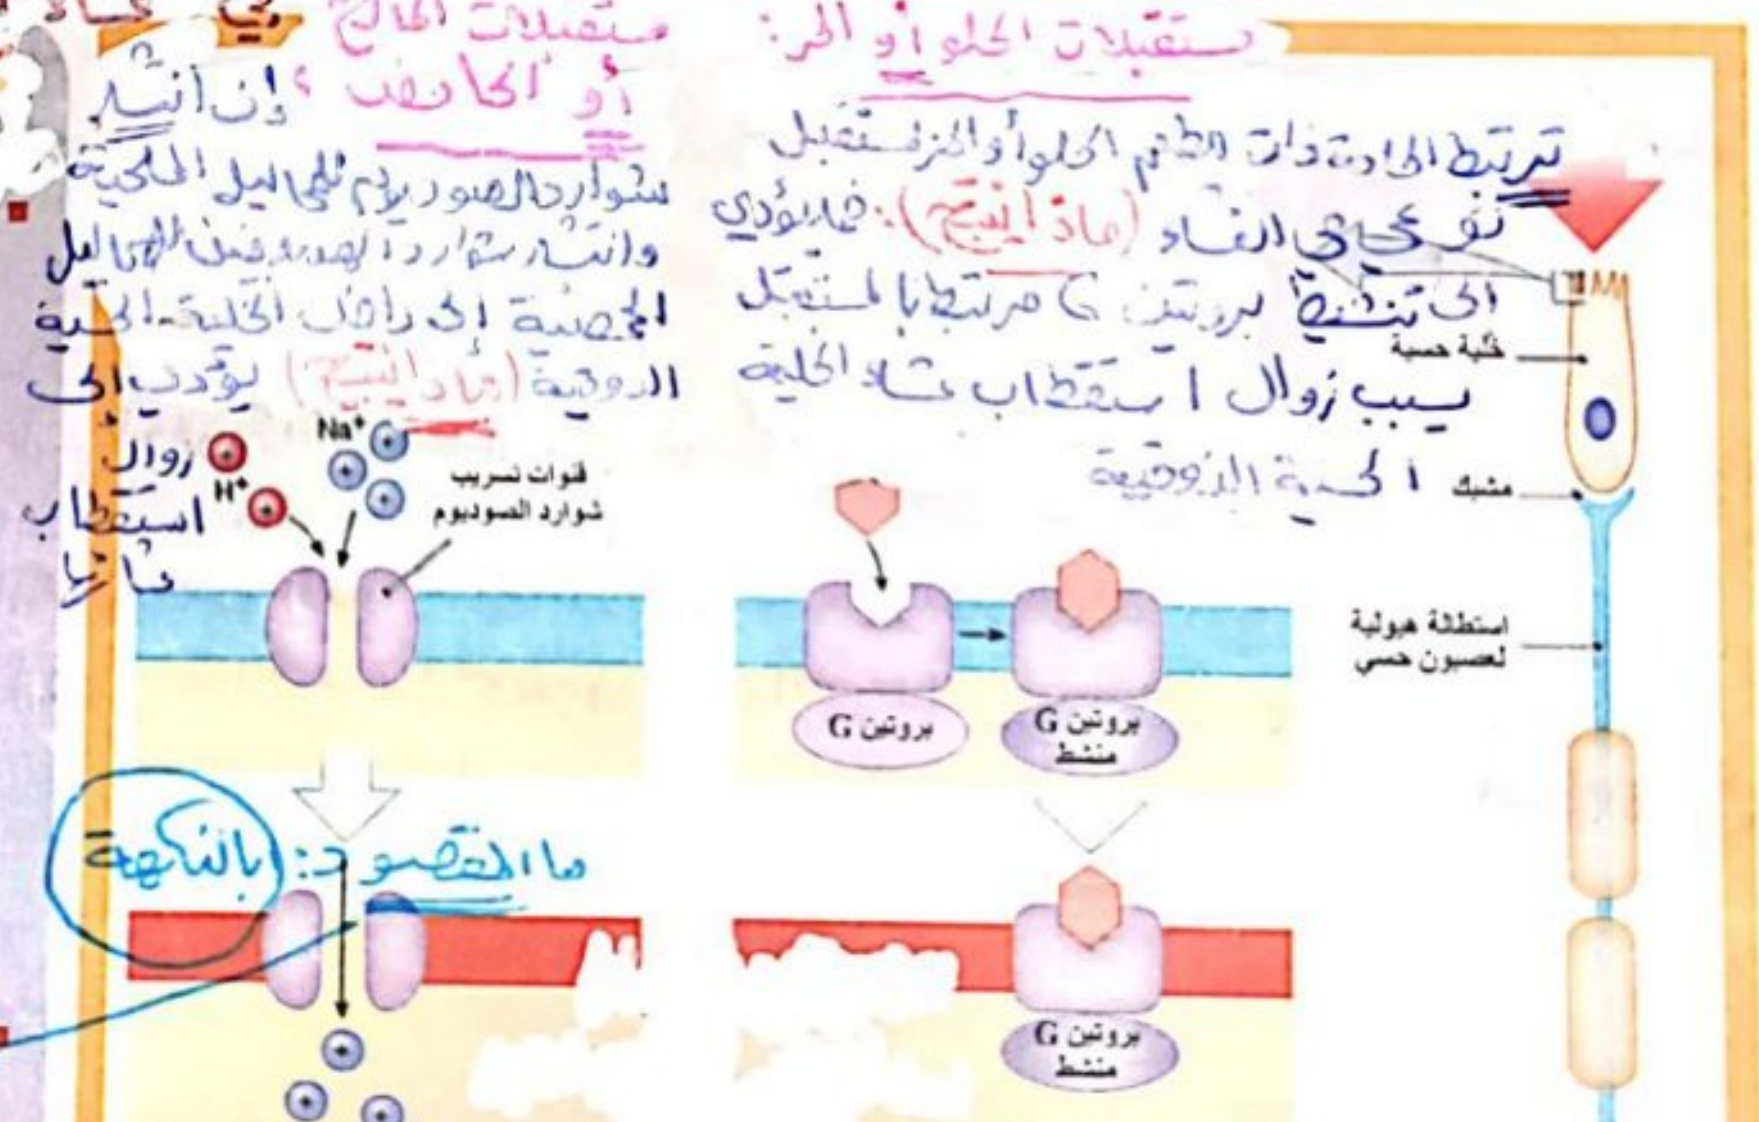 مستقبلات الحلو أو المر:
ترتبط المادة ذات الطعم الحلو أو المر بمستقبل
نوعي في الغشاء (ماذا ينتج): مما يؤدي
الى تنشيط بروتين G مرتبط بالمستقبل
يسبب زوال استقطاب غشاء الخلية
الحسية الذوقية
مستقبلات المالح
أو الحامض: إن انتشار
شوارد الصوديوم للمحاليل الملحية
وانتشار شوارد الهيدروجين للمحاليل
الحمضية إلى داخل الخلية الحسية
الذوقية (ماذا ينتج) يؤدي إلى
زوال
استقطاب
غشائها
خلية حسية
مشبك
استطالة هيولية
لعصبون حسي
Na⁺
H⁺
قنوات تسريب
شوارد الصوديوم
بروتين G
بروتين G
منشط
ما المقصود: بالنكهة
بروتين G
منشط